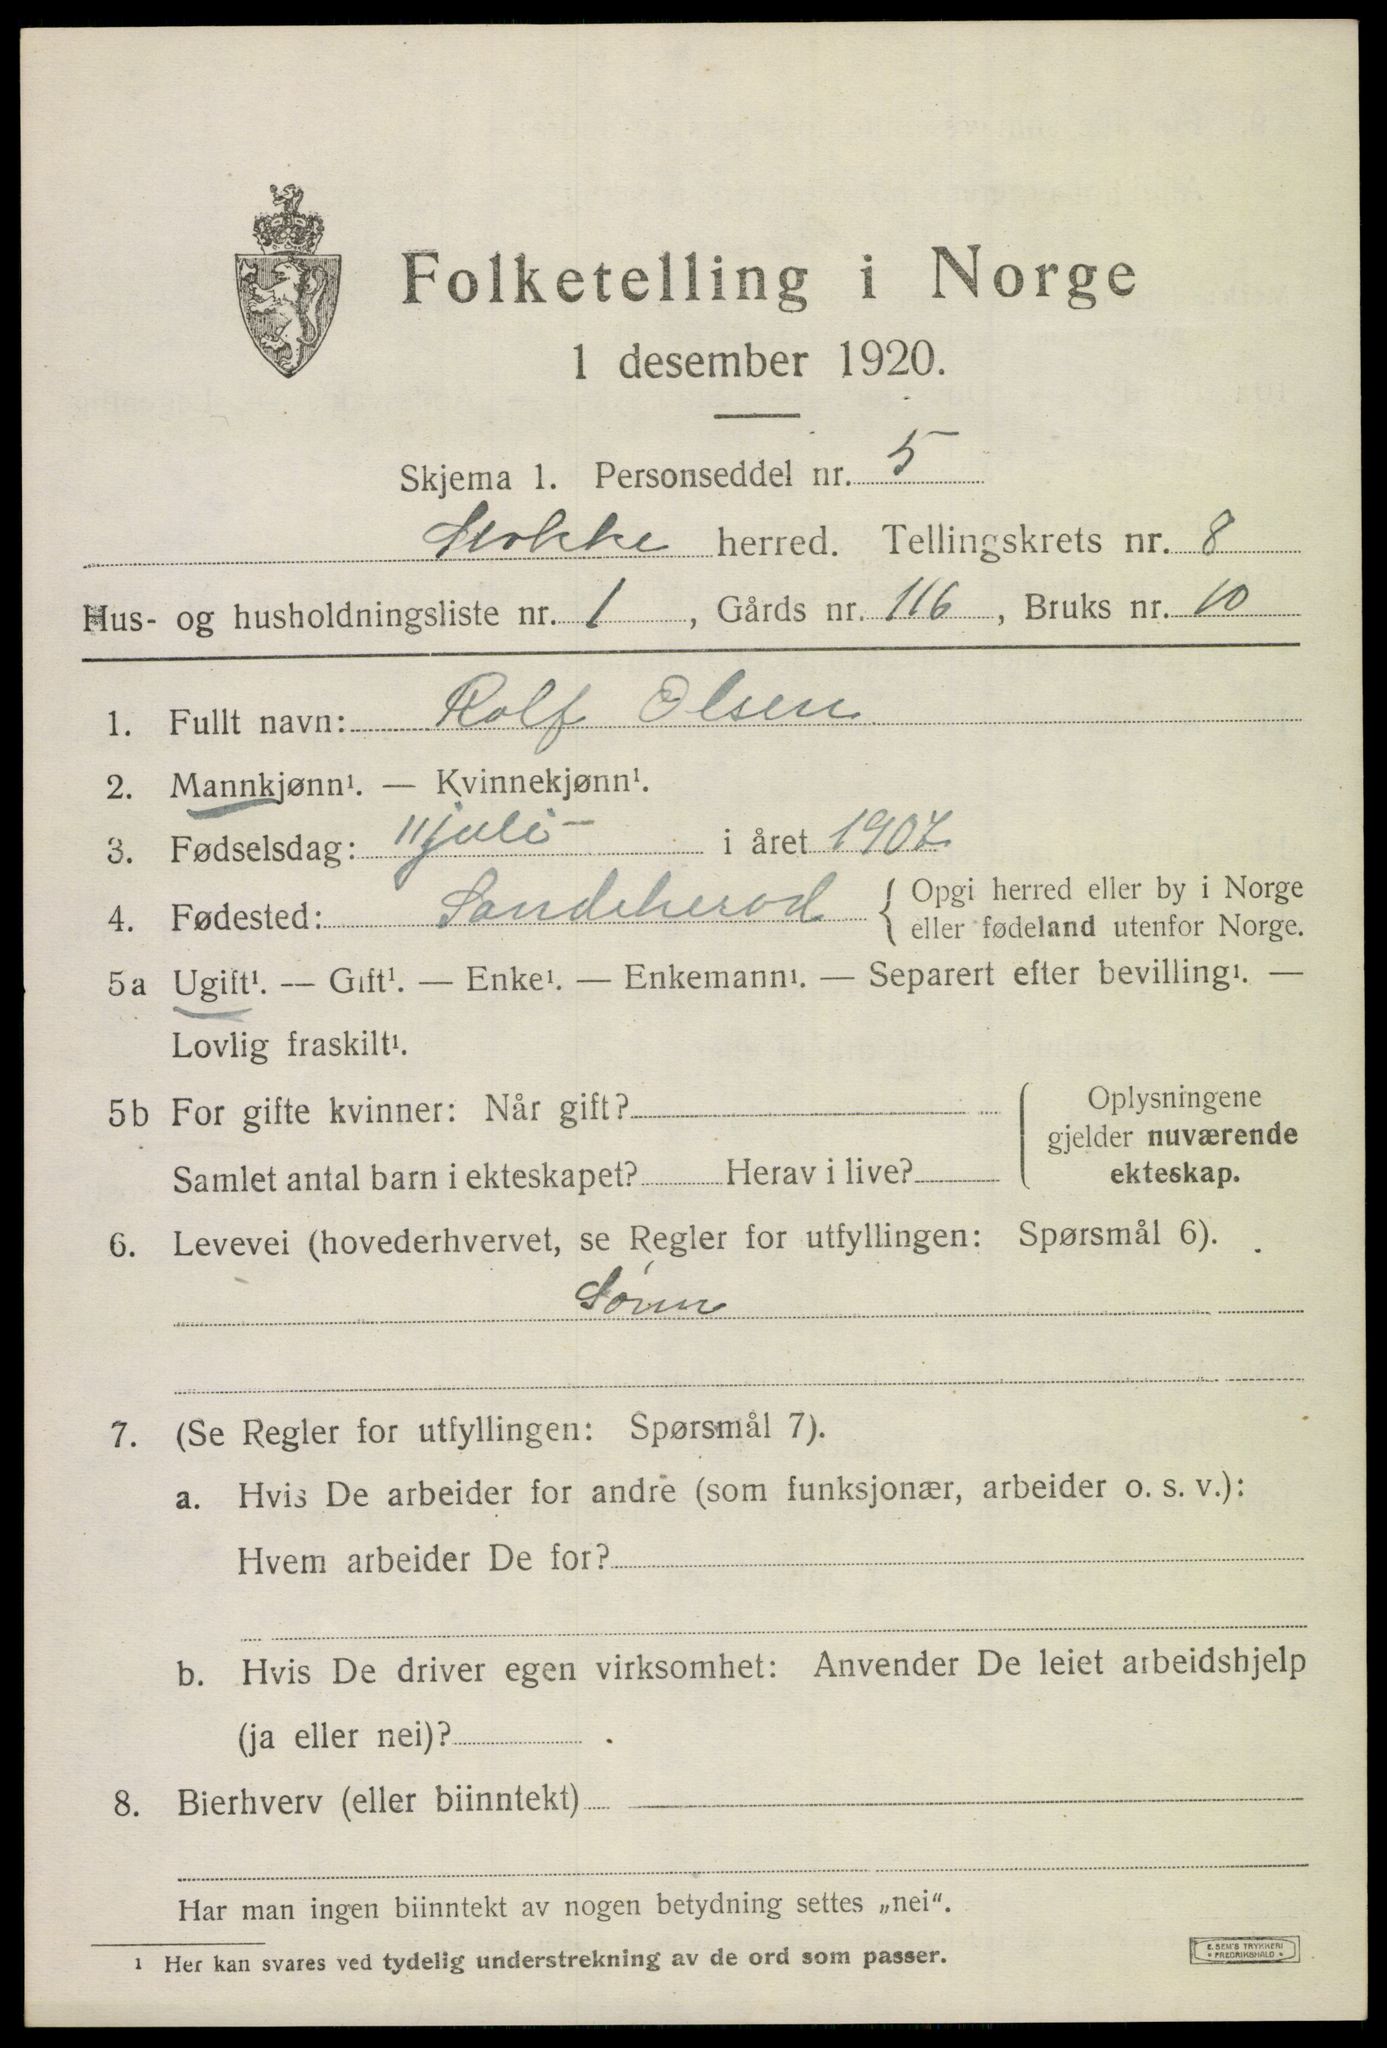 Folketelling i Norge
1 desember 1920.
Skjema 1. Personseddel nr. 5
Stokke herred. Tellingskrets nr. 8
Hus- og husholdningsliste nr. 1, Gårds nr. 116, Bruks nr. 10
1. Fullt navn: Rolf Olsen
2. Mannkjønn¹. — Kvinnekjønn¹.
3. Fødselsdag: 11 juli - i året 1907
4. Fødested: Sandeherod { Opgi herred eller by i Norge
eller fødeland utenfor Norge.
5a Ugift¹. — Gift¹. — Enke¹. — Enkemann¹. — Separert efter bevilling¹. —
Lovlig fraskilt¹.
5b For gifte kvinner: Når gift? { Oplysningene
gjelder nuværende
Samlet antal barn i ekteskapet? Herav i live? ekteskap.
6. Levevei (hovederhvervet, se Regler for utfyllingen: Spørsmål 6).
Sønn
7. (Se Regler for utfyllingen: Spørsmål 7).
a. Hvis De arbeider for andre (som funksjonær, arbeider o. s. v.):
Hvem arbeider De for?
b. Hvis De driver egen virksomhet: Anvender De leiet arbeidshjelp
(ja eller nei)?
8. Bierhverv (eller biinntekt)
Har man ingen biinntekt av nogen betydning settes „nei“.
¹ Her kan svares ved tydelig understrekning av de ord som passer.
E. SEM'S TRYKKERI
FREDRIKSHALD